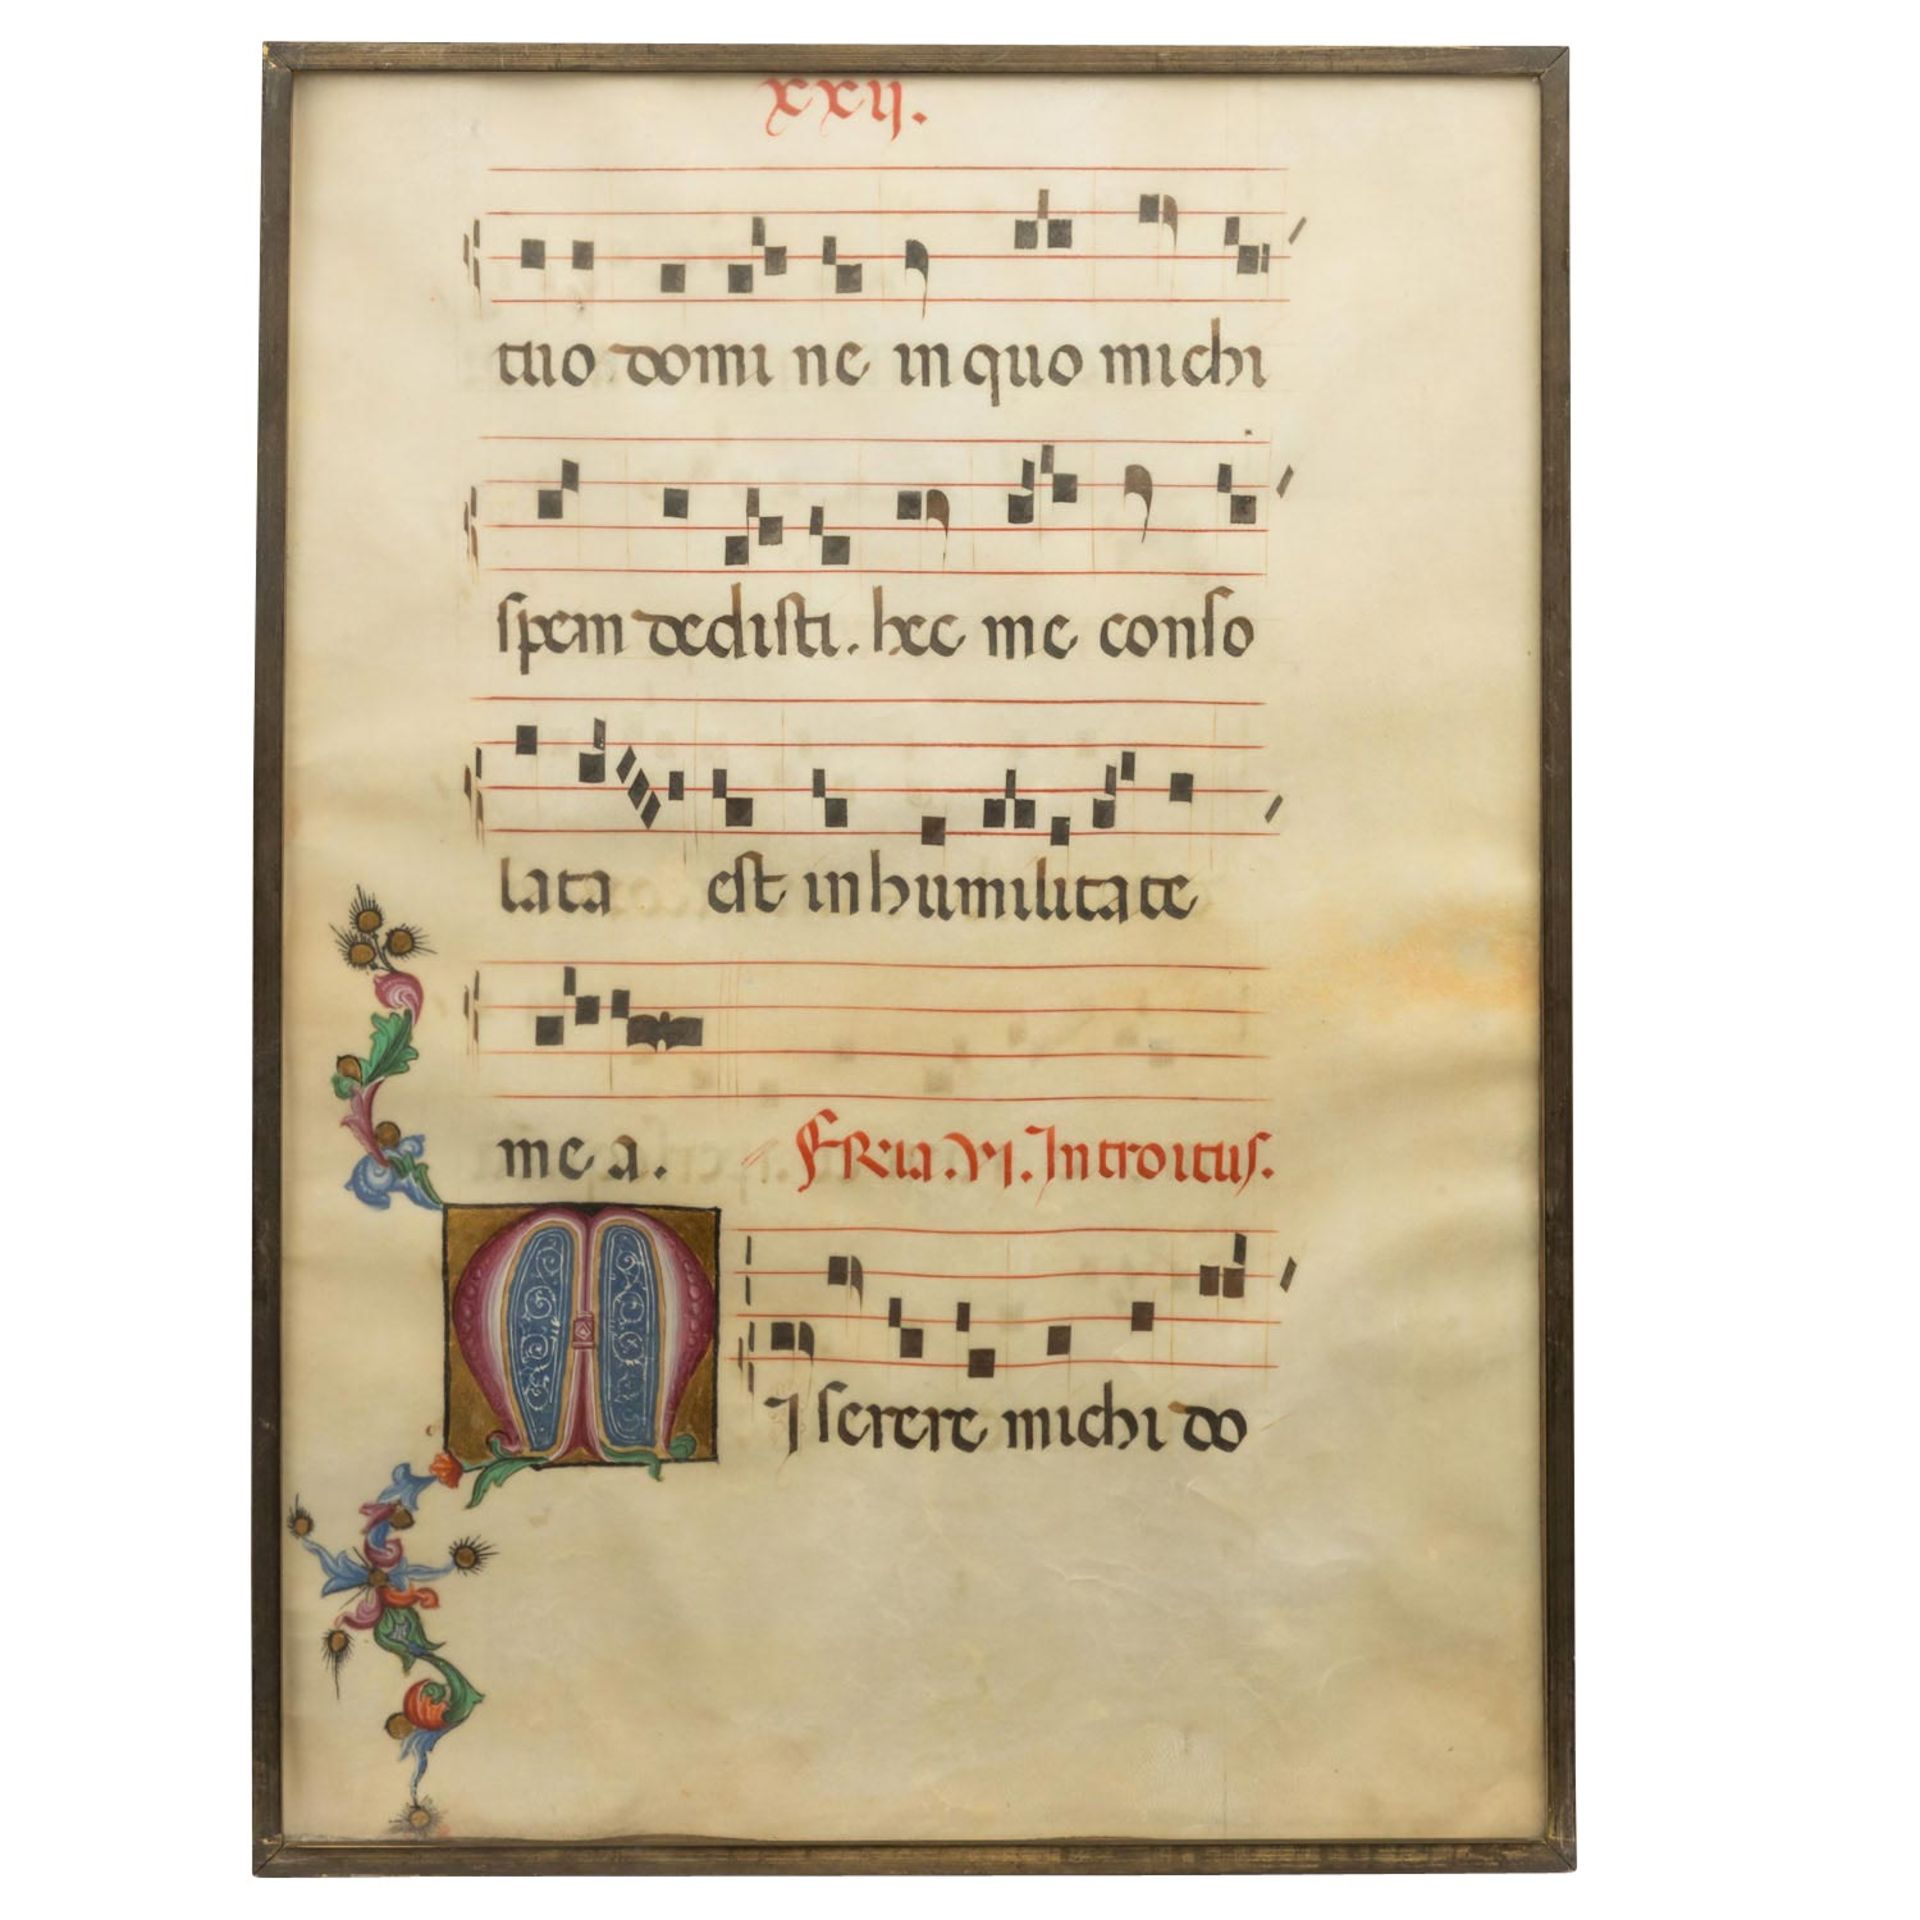 xxij.
tuo domi ne in quo michi
spem dedisti. hec me conso
lata est in humilitate
me a. FERia. VI. Introitus.
MJ serere michi do